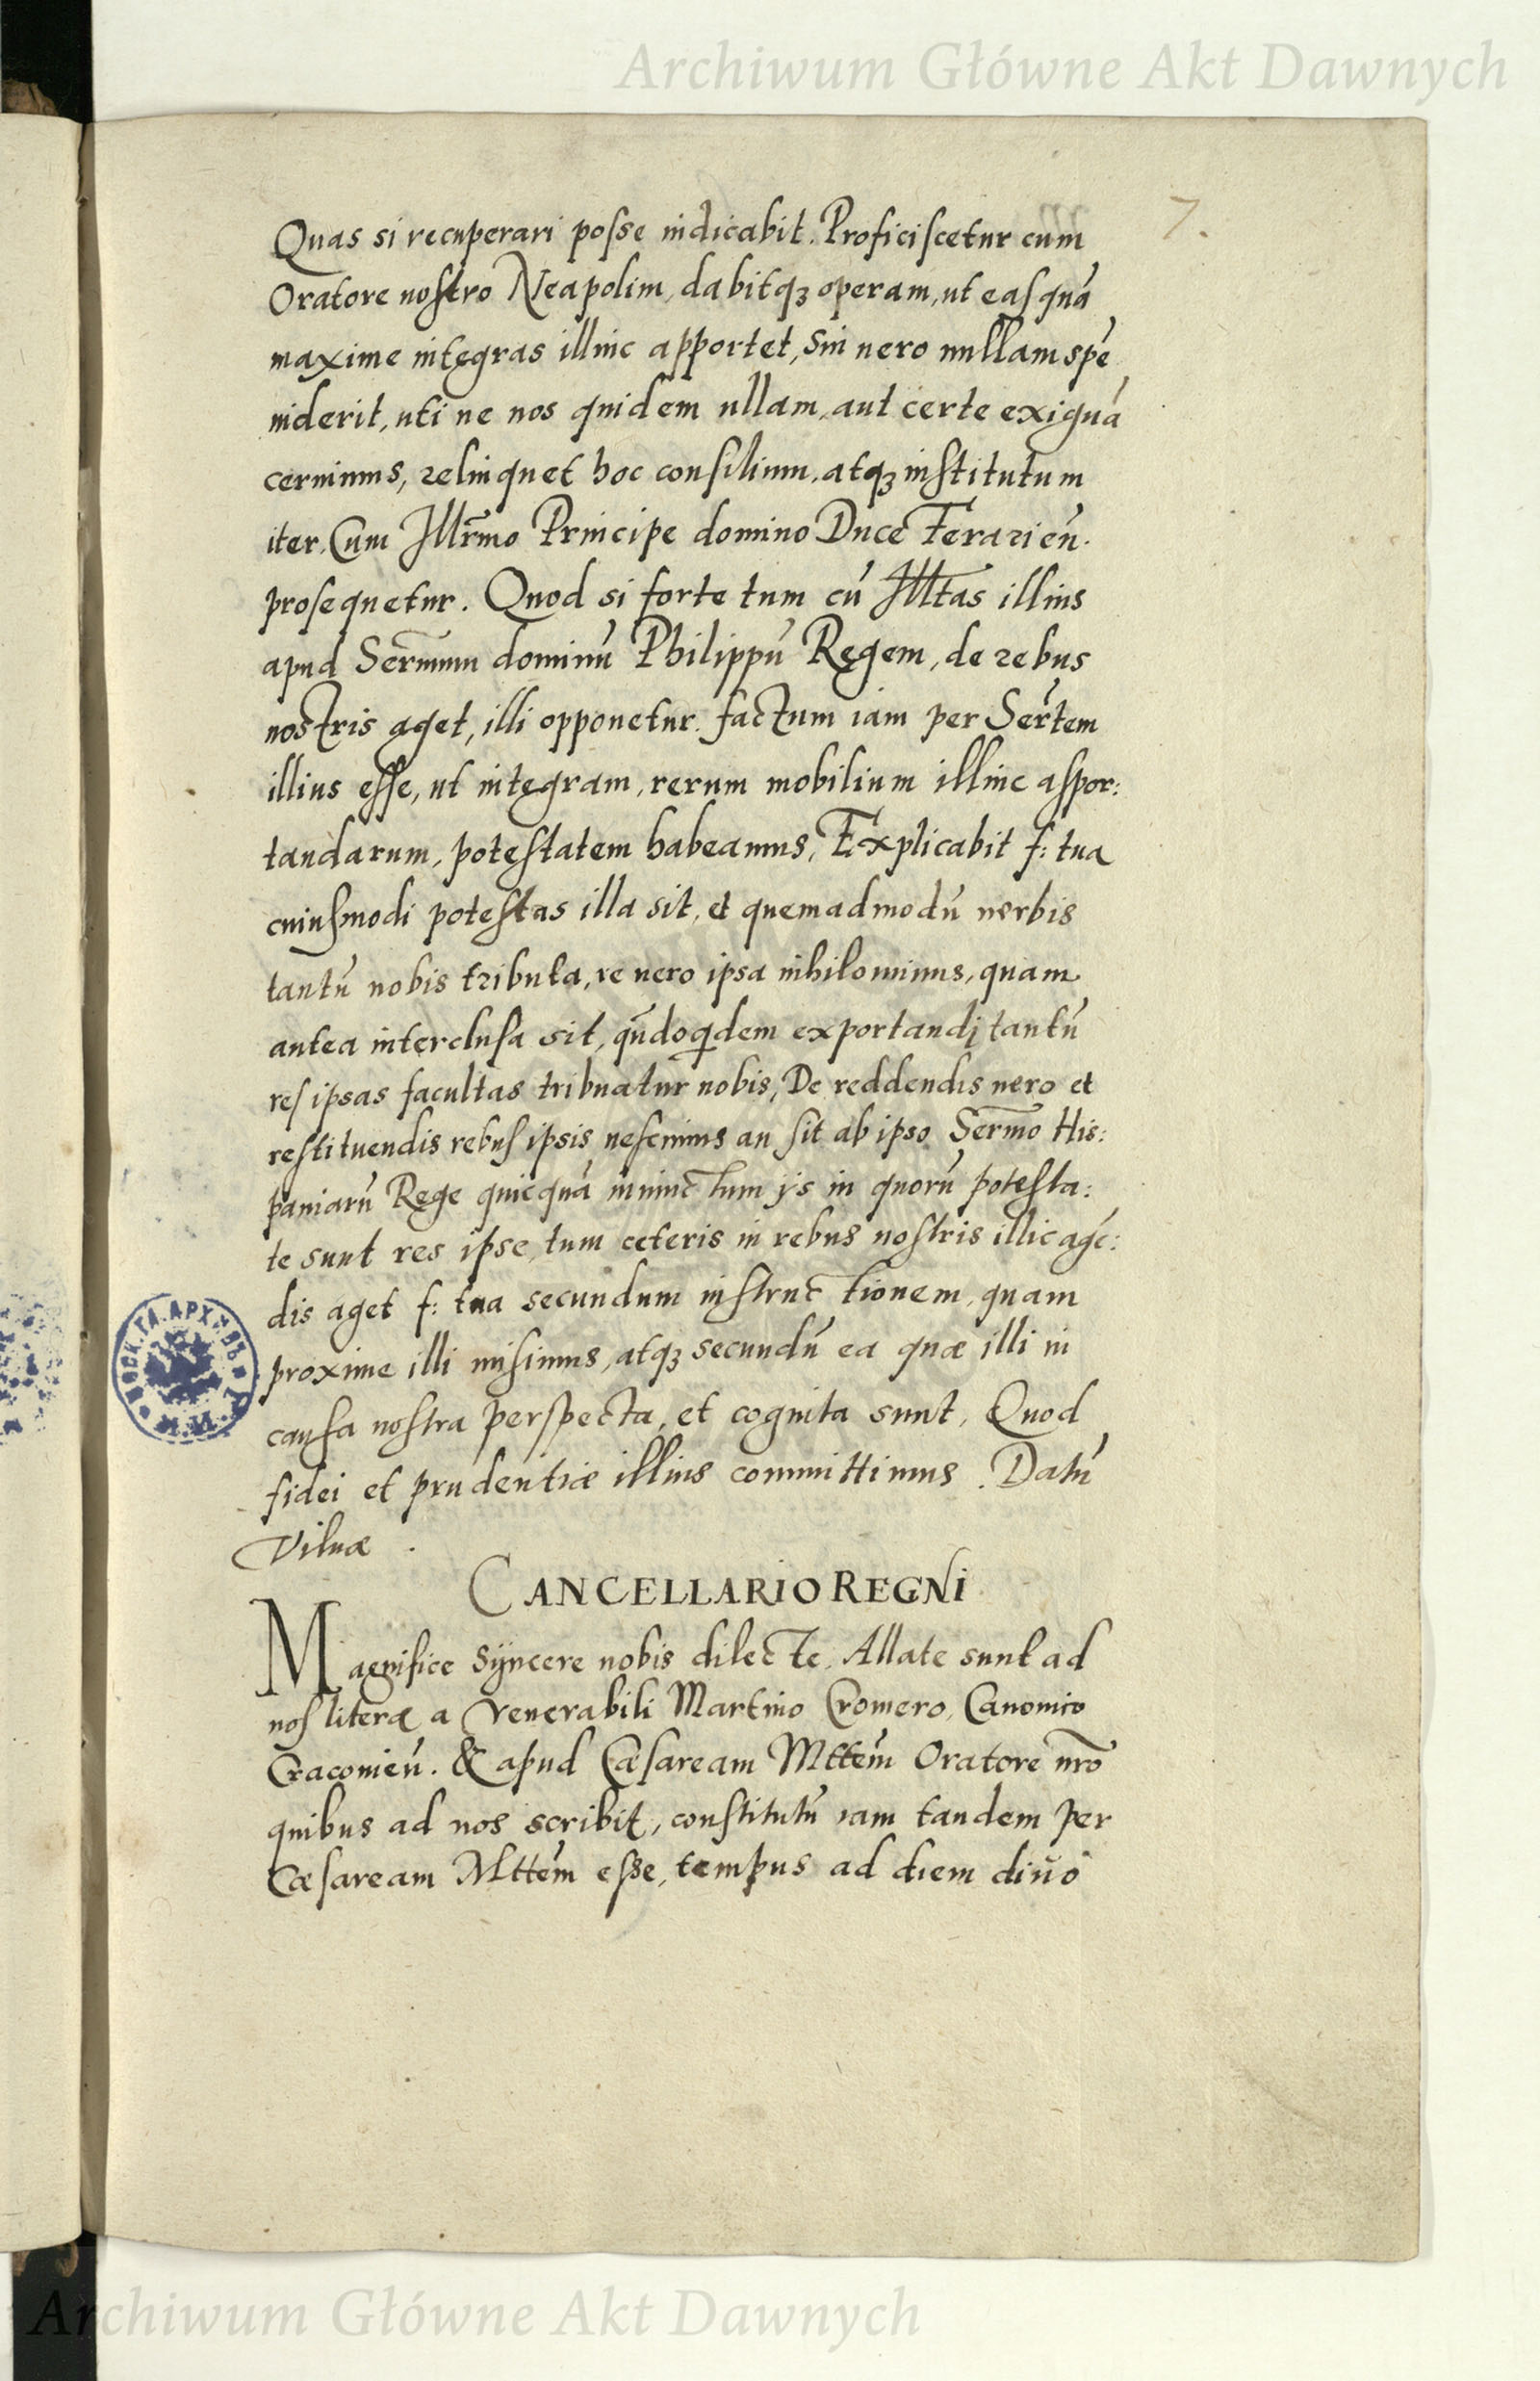 Archiwum Główne Akt Dawnych
7.
Quas si recuperari posse iudicabit. Proficiscetur cum
Oratore nostro Neapolim, dabitqꝫ operam, ut eas quá
maxime integras illinc apportet, sin uero nullam spē
uiderit, uti ne nos quidem ullam, aut certe exiguá
cernimus, relinquet hoc consilium, atqꝫ institutum
iter, Cum Illr̄mo Principe domino Duce Ferarień.
prosequetur. Quod si forte tum cú Illtas illius
apud Serm̄um dominú Philippú Regem, de rebus
nostris aget, illi opponetur factum iam per Sertem
illius esse, ut integram, rerum mobilium illinc aspor:
tandarum, potestatem habeamus, Explicabit f: tua
cuiusmodi potestas illa sit, et quemadmodú uerbis
tantú nobis tributa, re uero ipsa nihilominus, quam
antea interclusa sit, qūdoqidem exportandi tantú
res ipsas facultas tribuatur nobis, De reddendis uero et
restituendis rebus ipsis nescimus an sit ab ipso Serm̄o His:
paniarú Rege quicquá iniunctum ijs in quorú potesta:
te sunt res ipse, tum ceteris in rebus nostris illic agé:
dis aget f: tua secundum instructionem, quam
proxime illi misimus, atqꝫ secundú ea quæ illi in
causa nostra perspecta, et cognita sunt, Quod
fidei et prudentiæ illius committimus. Datú
Vilnæ.
CANCELLARIO REGNI
Magnifice Syncere nobis dilecte. Allate sunt ad
nos literæ a Venerabili Martino Cromero, Canonico
Cracouień. & apud Cæsaream Mttem Oratore nr̄o
quibus ad nos scribit, constitutú iam tandem per
Cæsaream Mttém esse, tempus ad diem diuo
Archiwum Główne Akt Dawnych